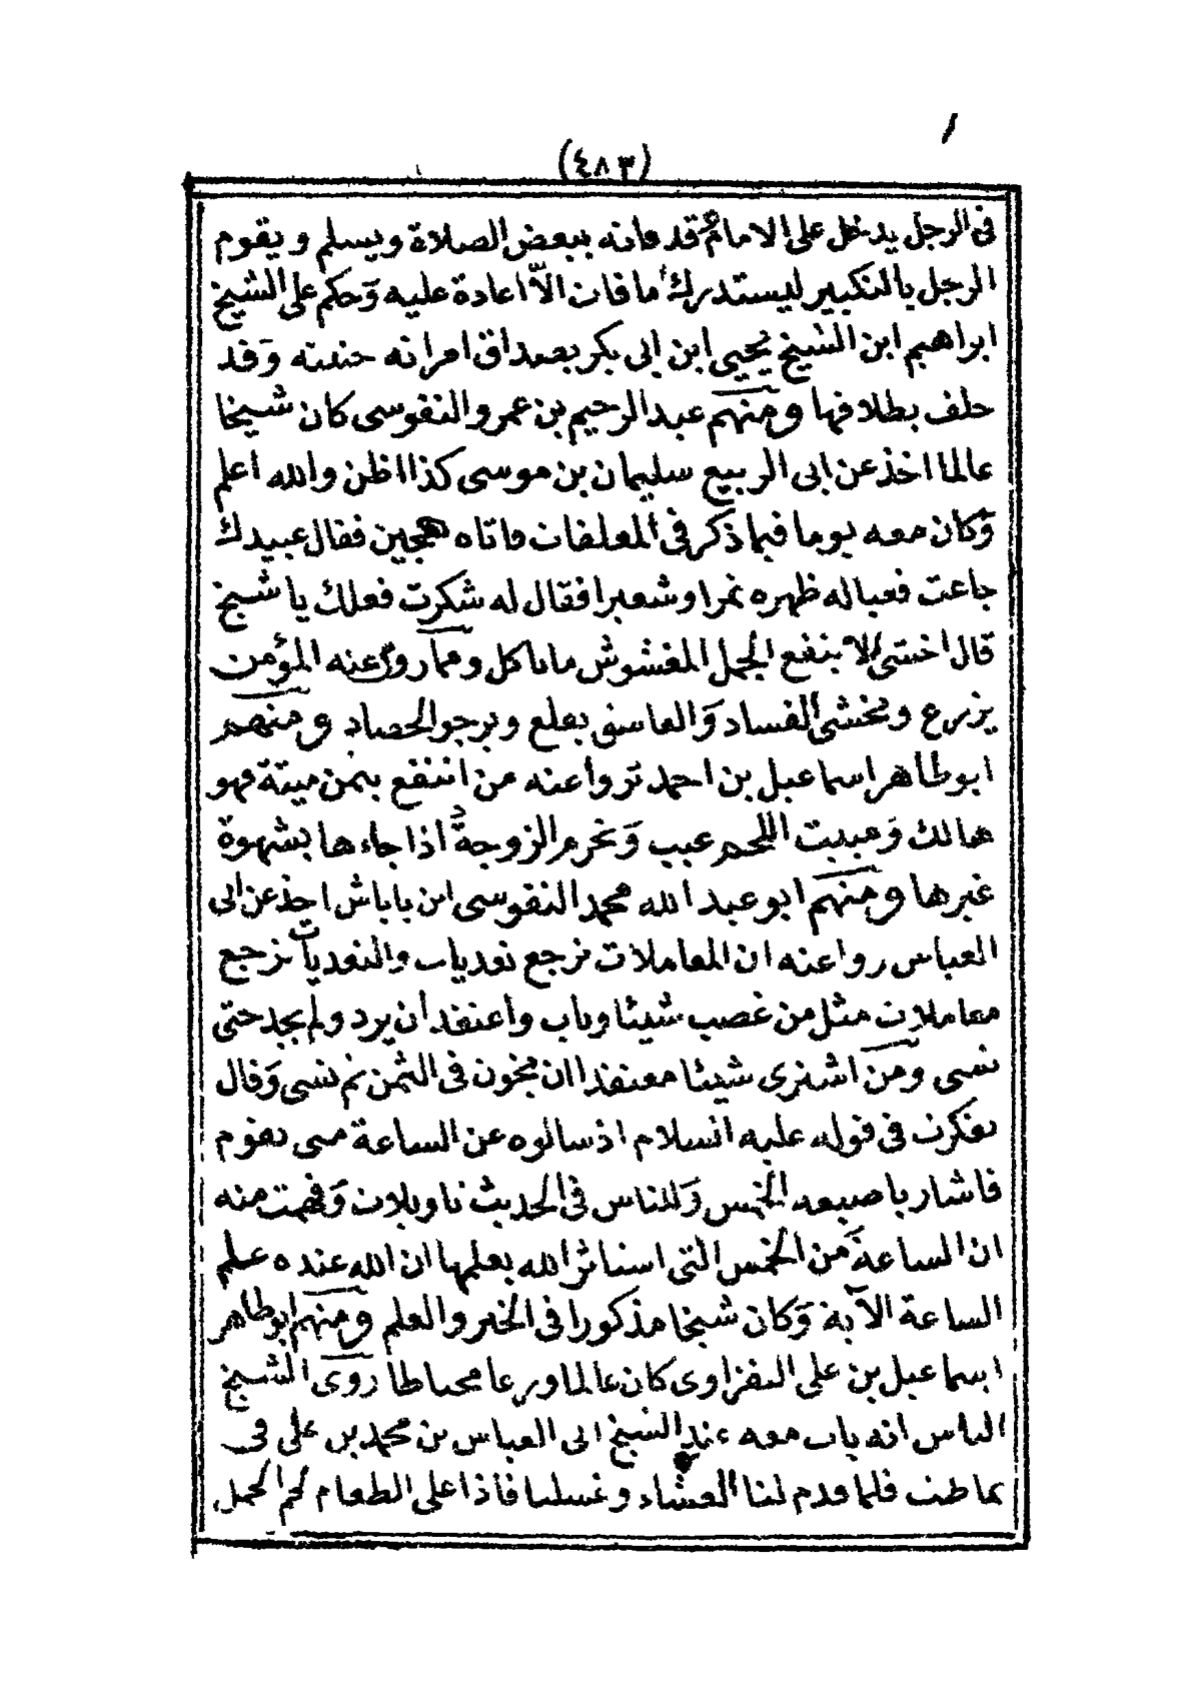 (٤٨٣)
في الرجل يدخل على الامام وقد فاته ببعض الصلاة ويسلم ويقوم
الرجل بالتكبير ليستدرك ما فات ألّا اعادة عليه وحكم على الشيخ
ابراهيم ابن الشيخ يحيى ابن ابى بكر بصداق امراته حنثته وقد
حلف بطلاقها ومنهم عبد الرحيم بن عمرو النفوسى كان شيخا
عالما اخذ عن ابى الربيع سليمان بن موسى كذا اظن والله اعلم
وكان معه يوما فيما ذكر فى المعلقات فاتاه همجين فقال عبيدك
جاعت فعباله ظهره تمرا وشعيرا فقال له شكرت فعلك يا شيخ
قال اخشى الا ينفع الجمل المغشوش ما ياكل ومما روى عنه المؤمن
يزرع ويخشى الفساد والفاسق يقلع ويرجو الحصاد ومنهم
ابو طاهر اسماعيل بن احمد تروا عنه من انتفع بثمن ميتة فهو
هالك ومبيت اللحم عيب وتحرم الزوجة اذا جاءها بشهوة
غيرها ومنهم ابو عبد الله محمد النفوسى ابن باباش اخذ عن ابى
العباس رواعنه ان المعاملات ترجع تعديات والتعديات ترجع
معاملات مثل من غصب شيئا وتاب واعتقد ان يرد ولم يجد حتى
نسى ومن اشترى شيئا معتقدا ان يخون فى الثمن ثم نسى وقال
تفكرت فى قوله عليه السلام اذ سالوه عن الساعة متى تقوم
فاشار باصبعه الخمس وللناس فى الحديث تاويلات وفهمت منه
ان الساعة من الخمس التى استاثر الله بعلمها ان الله عنده علم
الساعة الآية وكان شيخا مذكورا فى الخير والعلم ومنهم ابو طاهر
اسماعيل بن على النفزاوى كان عالما ورعا محتاطا روى الشيخ
الياس انه بات معه عند الشيخ ابى العباس بن محمد بن على فى
تماطت فلما قدم لنا العشاء وغسلنا فاذا على الطعام لحم الجمل